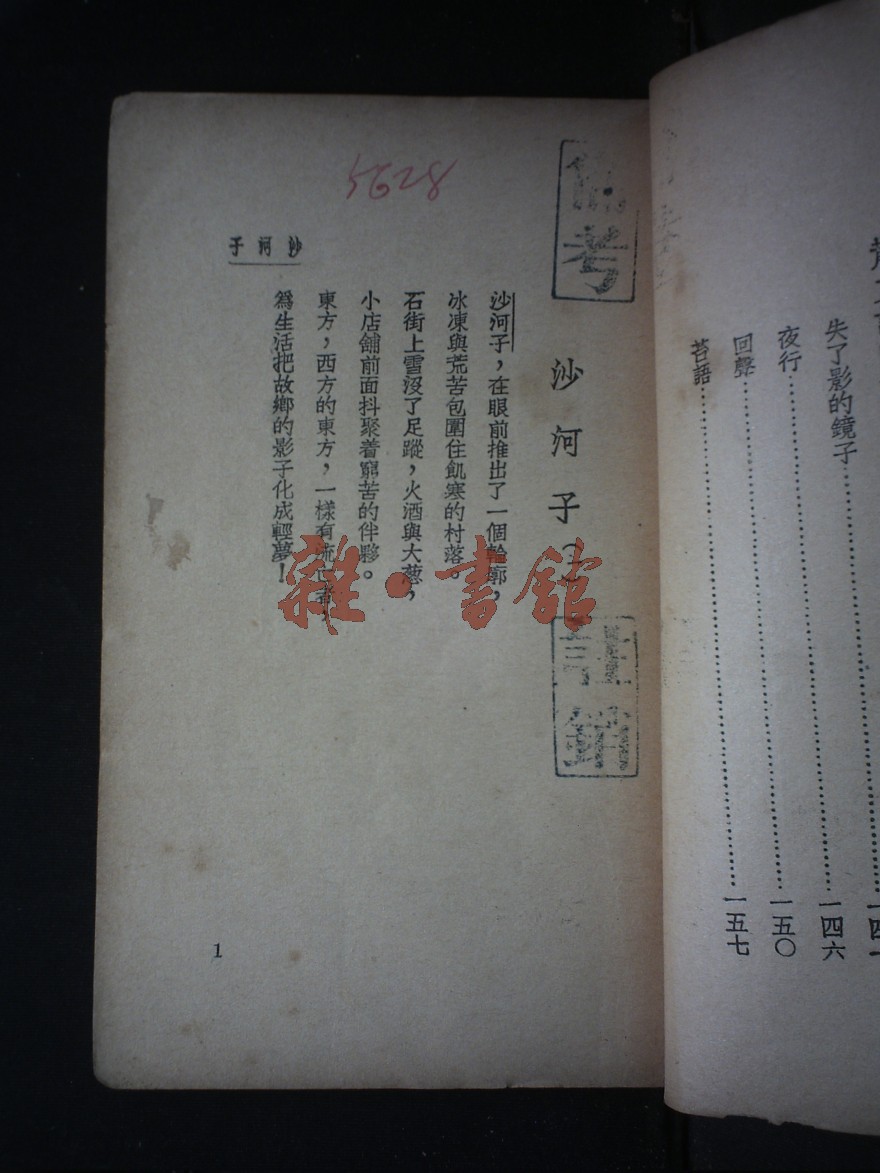 失了影的鏡子……一四六
夜行……一五〇
回聲……一五七
苔語……
5628
備考
沙河子
註銷
沙河子
沙河子，在眼前推出了一個輪廓，
冰凍與荒苦包圍住飢寒的村落。
石街上雪沒了足蹤，火酒與大蔥，
小店舖前面抖聚着窮苦的伴夥。
東方，西方的東方，一樣有流
爲生活把故鄉的影子化成輕夢！
雜·書館
1